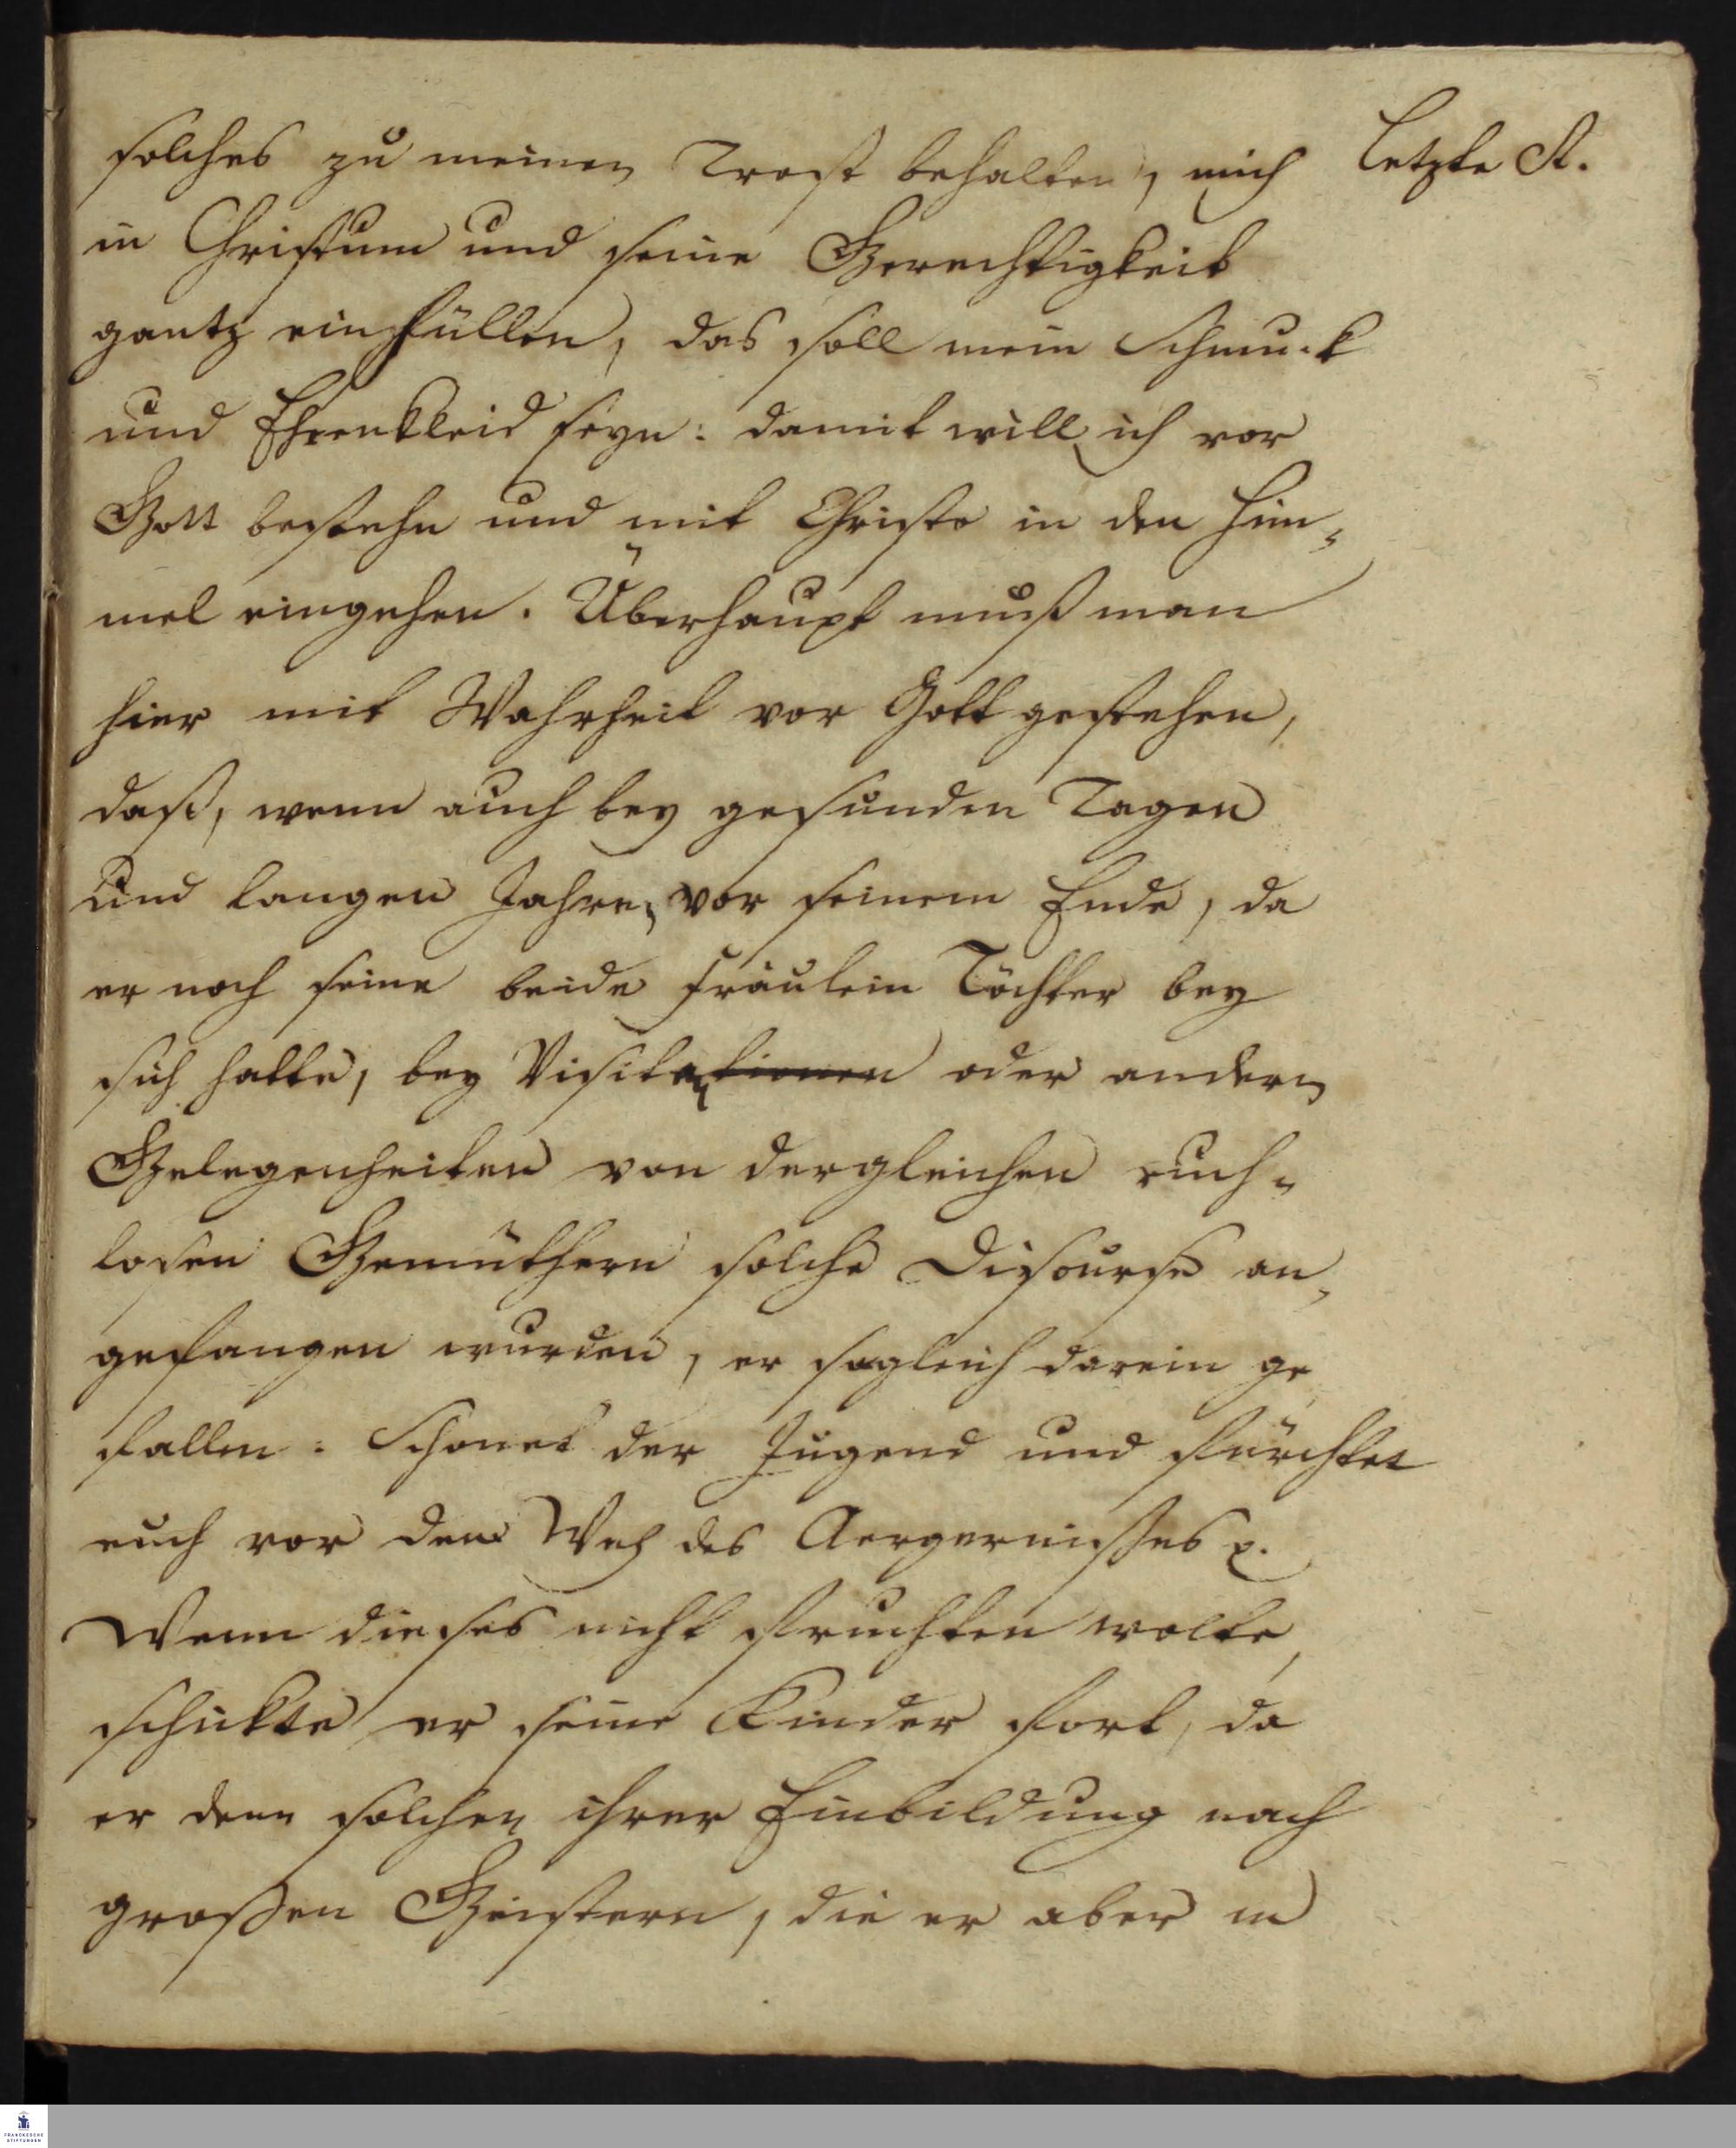 solches zu meinen Trost behalten, mich
letzte St.
in Christum und seine Gerechtigkeit
gantz einhüllen, das soll mein Schmuck
und Ehrenkleid seyn: damit will ich vor
Gott bestehn und mit Christo in den Him-
mel eingehen. Überhaupt muß man
hier mit Wahrheit vor Gott gestehen,
daß, wenn auch bey gesunden Tagen
und langen Jahren vor seinem Ende, da
er noch seine beide Fräulein Töchter bey
sich hatte, bey Visitationen oder andern
Gelegenheiten von dergleichen ruch-
losen Gemüthern solche Discourse an-
gefangen wurden, er sogleich darein ge
fallen: Schonet der Jugend und fürchtet
euch vor dem Weh des Aergernißes p.
Wenn dieses nicht fruchten wolte,
schickte er seine Kinder fort, da
er denn solchen ihrer Einbildung nach
großen Geistern, die er aber in
FRANCKESCHE
STIFTUNGEN